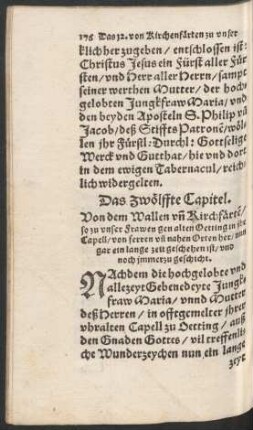 176 Das 12. von Kirchenfärten zu vnser
klich herzugeben / entschlossen ist:
Christus Jesus ein Fürst aller Für
sten / vnd Herr aller Herrn / sampt
seiner werthen Mutter / der hoch-
gelobten Jungkfraw Maria / vnd
den beyden Aposteln S. Philip vñ
Jacob / deß Stiffts Patronẽ / wöl-
len jhr Fürstl: Durchl: Gottselige
Werck vnd Gutthat / hie vnd dort
in dem ewigen Tabernacul / reich-
lich widergelten.
Das Zwölffte Capitel.
Von dem Wallen vñ Kirchfärtẽ /
so zu vnser Frawen gen alten Oetting in jhr
Capell / von ferren vñ nahen Orten her / nun
gar ein lange zeit geschehen ist / vnd
noch jmmerzu geschicht.
NAchdem die hochgelobte vnd
allezeyt Gebenedeyte Jungk-
fraw Maria / vnnd Mutter
deß Herren / in offtgemelter jhrer
vhralten Capell zu Oetting / auß
den Gnaden Gottes / vil treffenli-
che Wunderzeychen nun ein lange
zeyt